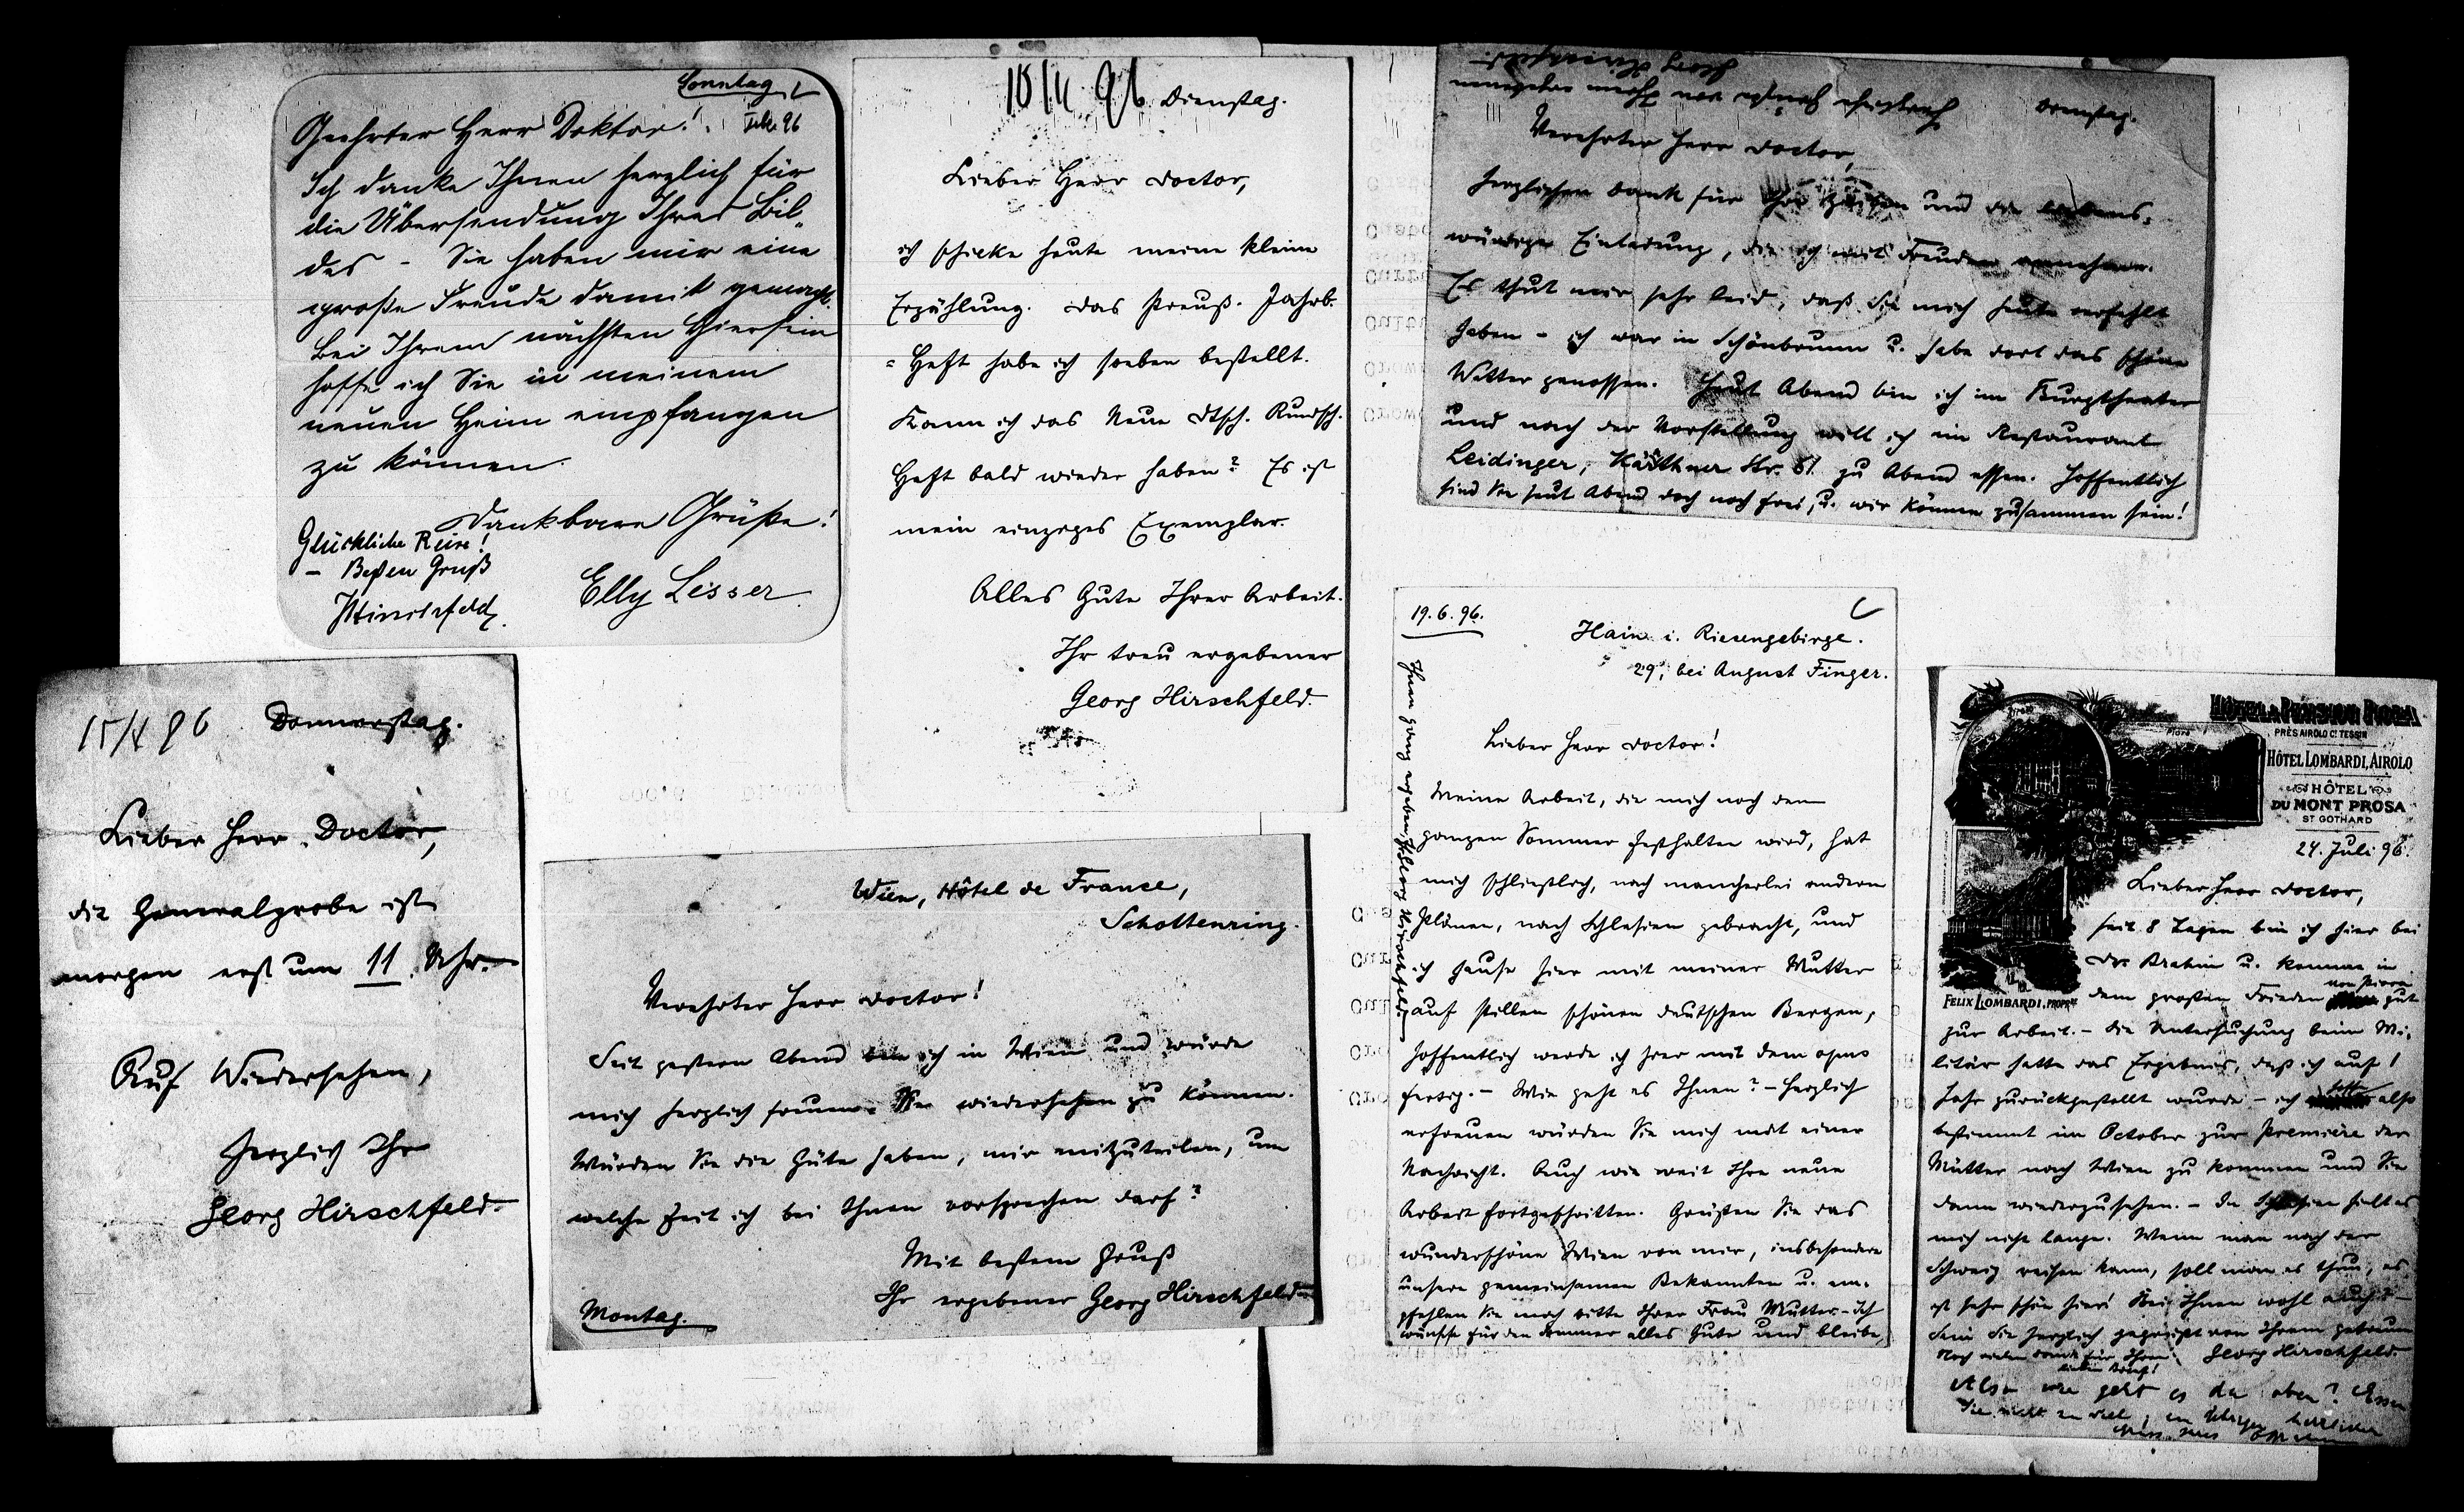 Sonntag
Febr 96
Geehrter Herr Doktor!
Ich danke Ihnen herzlich für
die Übersendung Ihres Bil-
des – Sie haben mir eine
große Freude damit gemacht.
Bei Ihrem nächsten Hiersein
hoffe ich Sie in meinem
neuen Heim empfangen
zu können.
Dankbare Grüße!
Elly Lesser
Glückliche Reise!
– Besten Gruß
Hirschfeld
96 Dienstag.
Lieber Herr Doctor,
ich schicke heute meine kleine
Erzählung. Das Preuß. Jahrb.
= Heft habe ich soeben bestellt.
Kann ich das Neue Dtsch. Rundsch.
Heft bald wieder haben? Es ist
mein einziges Exemplar.
Alles Gute Ihrer Arbeit.
Ihr treu ergebener
Georg Hirschfeld.
Dienstag.
Verehrter Herr Doctor,
herzlichen Dank für Ihre Zeilen und die liebens-
würdige Einladung, die ich mit Freuden annehme.
Es thut mir sehr leid, daß Sie mich heute verfehlt
haben – ich war in Schönbrunn u. habe dort das schöne
Wetter genossen. Heut Abend bin ich im Burgtheater
und nach der Vorstellung will ich im Restaurant
Leidinger, Kärthner Str. 61 zu Abend essen. Hoffentlich
sind Sie heut Abend doch noch frei, u. wir können zusammen sein!
Herzlich grüßt von Ihrem ergebenen
Georg Hirschfeld
15/X 96 Donnerstag.
Lieber Herr Doctor,
die Generalprobe ist
morgen erst um 11 Uhr.
Auf Wiedersehen,
herzlich Ihr
Georg Hirschfeld.
Wien, Hôtel de France,
Schottenring.
Verehrter Herr Doctor!
Seit gestern Abend bin ich in Wien und würde
mich herzlich freuen, Sie wiedersehen zu können.
Würden Sie die Güte haben, mir mitzuteilen, um
welche Zeit ich bei Ihnen vorsprechen darf?
Mit bestem Gruß
Ihr ergebener Georg Hirschfeld
Montag.
19.6.96.
Hain i. Riesengebirge.
29, bei August Finger.
Lieber Herr Doctor!
Meine Arbeit, die mich noch den
ganzen Sommer festhalten wird, hat
mich schließlich, nach mancherlei andern
Plänen, nach Schlesien gebracht, und
ich hause hier mit meiner Mutter
auf stillen schönen deutschen Bergen,
hoffentlich werde ich hier mit dem opus
fertig. – Wie geht es Ihnen? – Herzlich
erfreuen würden Sie mich mit einer
Nachricht. Auch wie weit Ihre neue
Arbeit fortgeschritten. Grüßen Sie das
wunderschöne Wien von mir, insbesondere
unsere gemeinsamen Bekannten u. em-
pfehlen Sie mich bitte Ihrer Frau Mutter – Ich
wünsche für den Sommer alles Gute und bleibe
Ihnen ganz ergeben, Ihr Georg Hirschfeld
HÔTEL & PENSION PIORA
PRÈS AIROLO Ct. TESSIN
HÔTEL LOMBARDI, AIROLO
HÔTEL
DU MONT PROSA
ST GOTHARD
FELIX LOMBARDI, PROPRre
24. Juli 96.
Lieber Herr Doctor,
seit 8 Tagen bin ich hier bei
der Brahm u. komme in
dem großen Frieden von Piora gut
zur Arbeit. – Die Untersuchung beim Mi-
litär hatte das Ergebnis, daß ich auf 1
Jahr zurückgestellt wurde – ich hoffe also
bestimmt im October zur Premiere der
Mütter nach Wien zu kommen und Sie
dann wiederzusehen. – In Schlesien hielt es
mich nicht lange. Wenn man nach der
Schweiz reisen kann, soll man es thun, es
ist sehr schön hier! Bei Ihnen wohl auch? –
Sein Sie herzlich gegrüßt von Ihrem getreuen
Georg Hirschfeld.
Noch vielen Dank für Ihren
lieben Brief!
Also wie geht es da oben? Essen
Sie nicht zu viel, im Übrigen herzliche